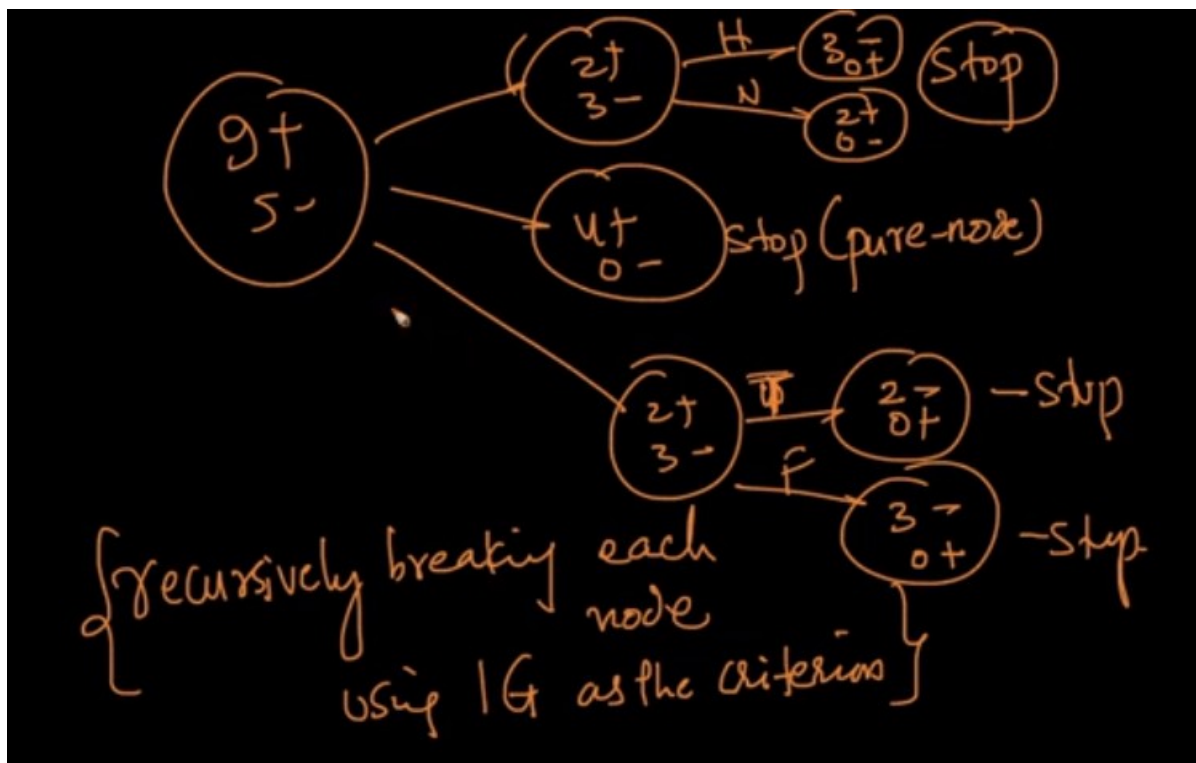 9+
5-
2+
3-
H
N
3-
0+
2+
0-
Stop
4+
0-
Stop (pure-node)
2+
3-
T
F
2-
0+
-Stop
3-
0+
-Stop
{recursively breaking each
node
using IG as the criterion}